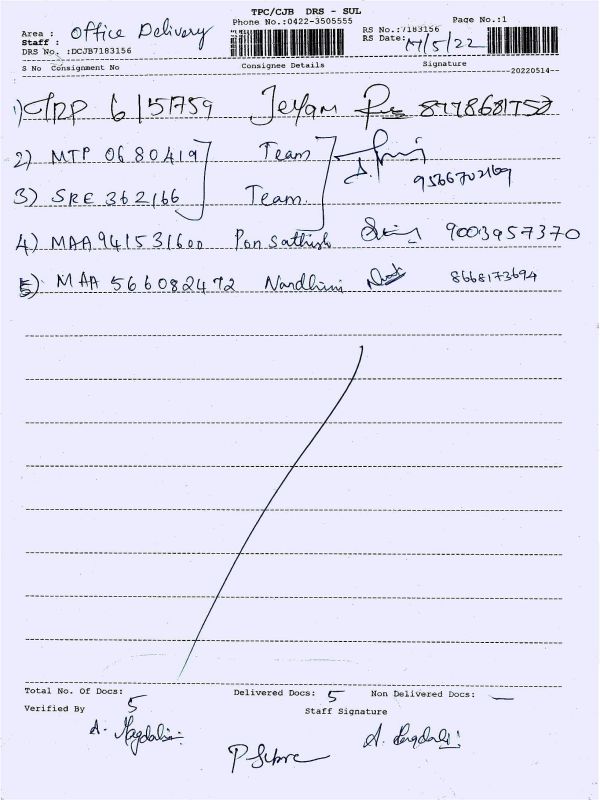 TPC/CJB DRS - SUL
Phone No.:0422-3505555
Page No.:1
Area : Office Delivery
RS No.:7183156
Staff :
RS Date: 17/5/22
DRS No. :DCJB7183156
S No Consignment No Consignee Details Signature
--20220514--
1) 6151759 Jeyam 8778681752
2) MTP 0680419 Team
9566702169
3) SRE 362166 Team
4) MAA 941531600 Ponsathish 9003957370
5) MAA 566082472 Nandhini 8668173694
Total No. Of Docs: 5 Delivered Docs: 5 Non Delivered Docs: —
Verified By Staff Signature